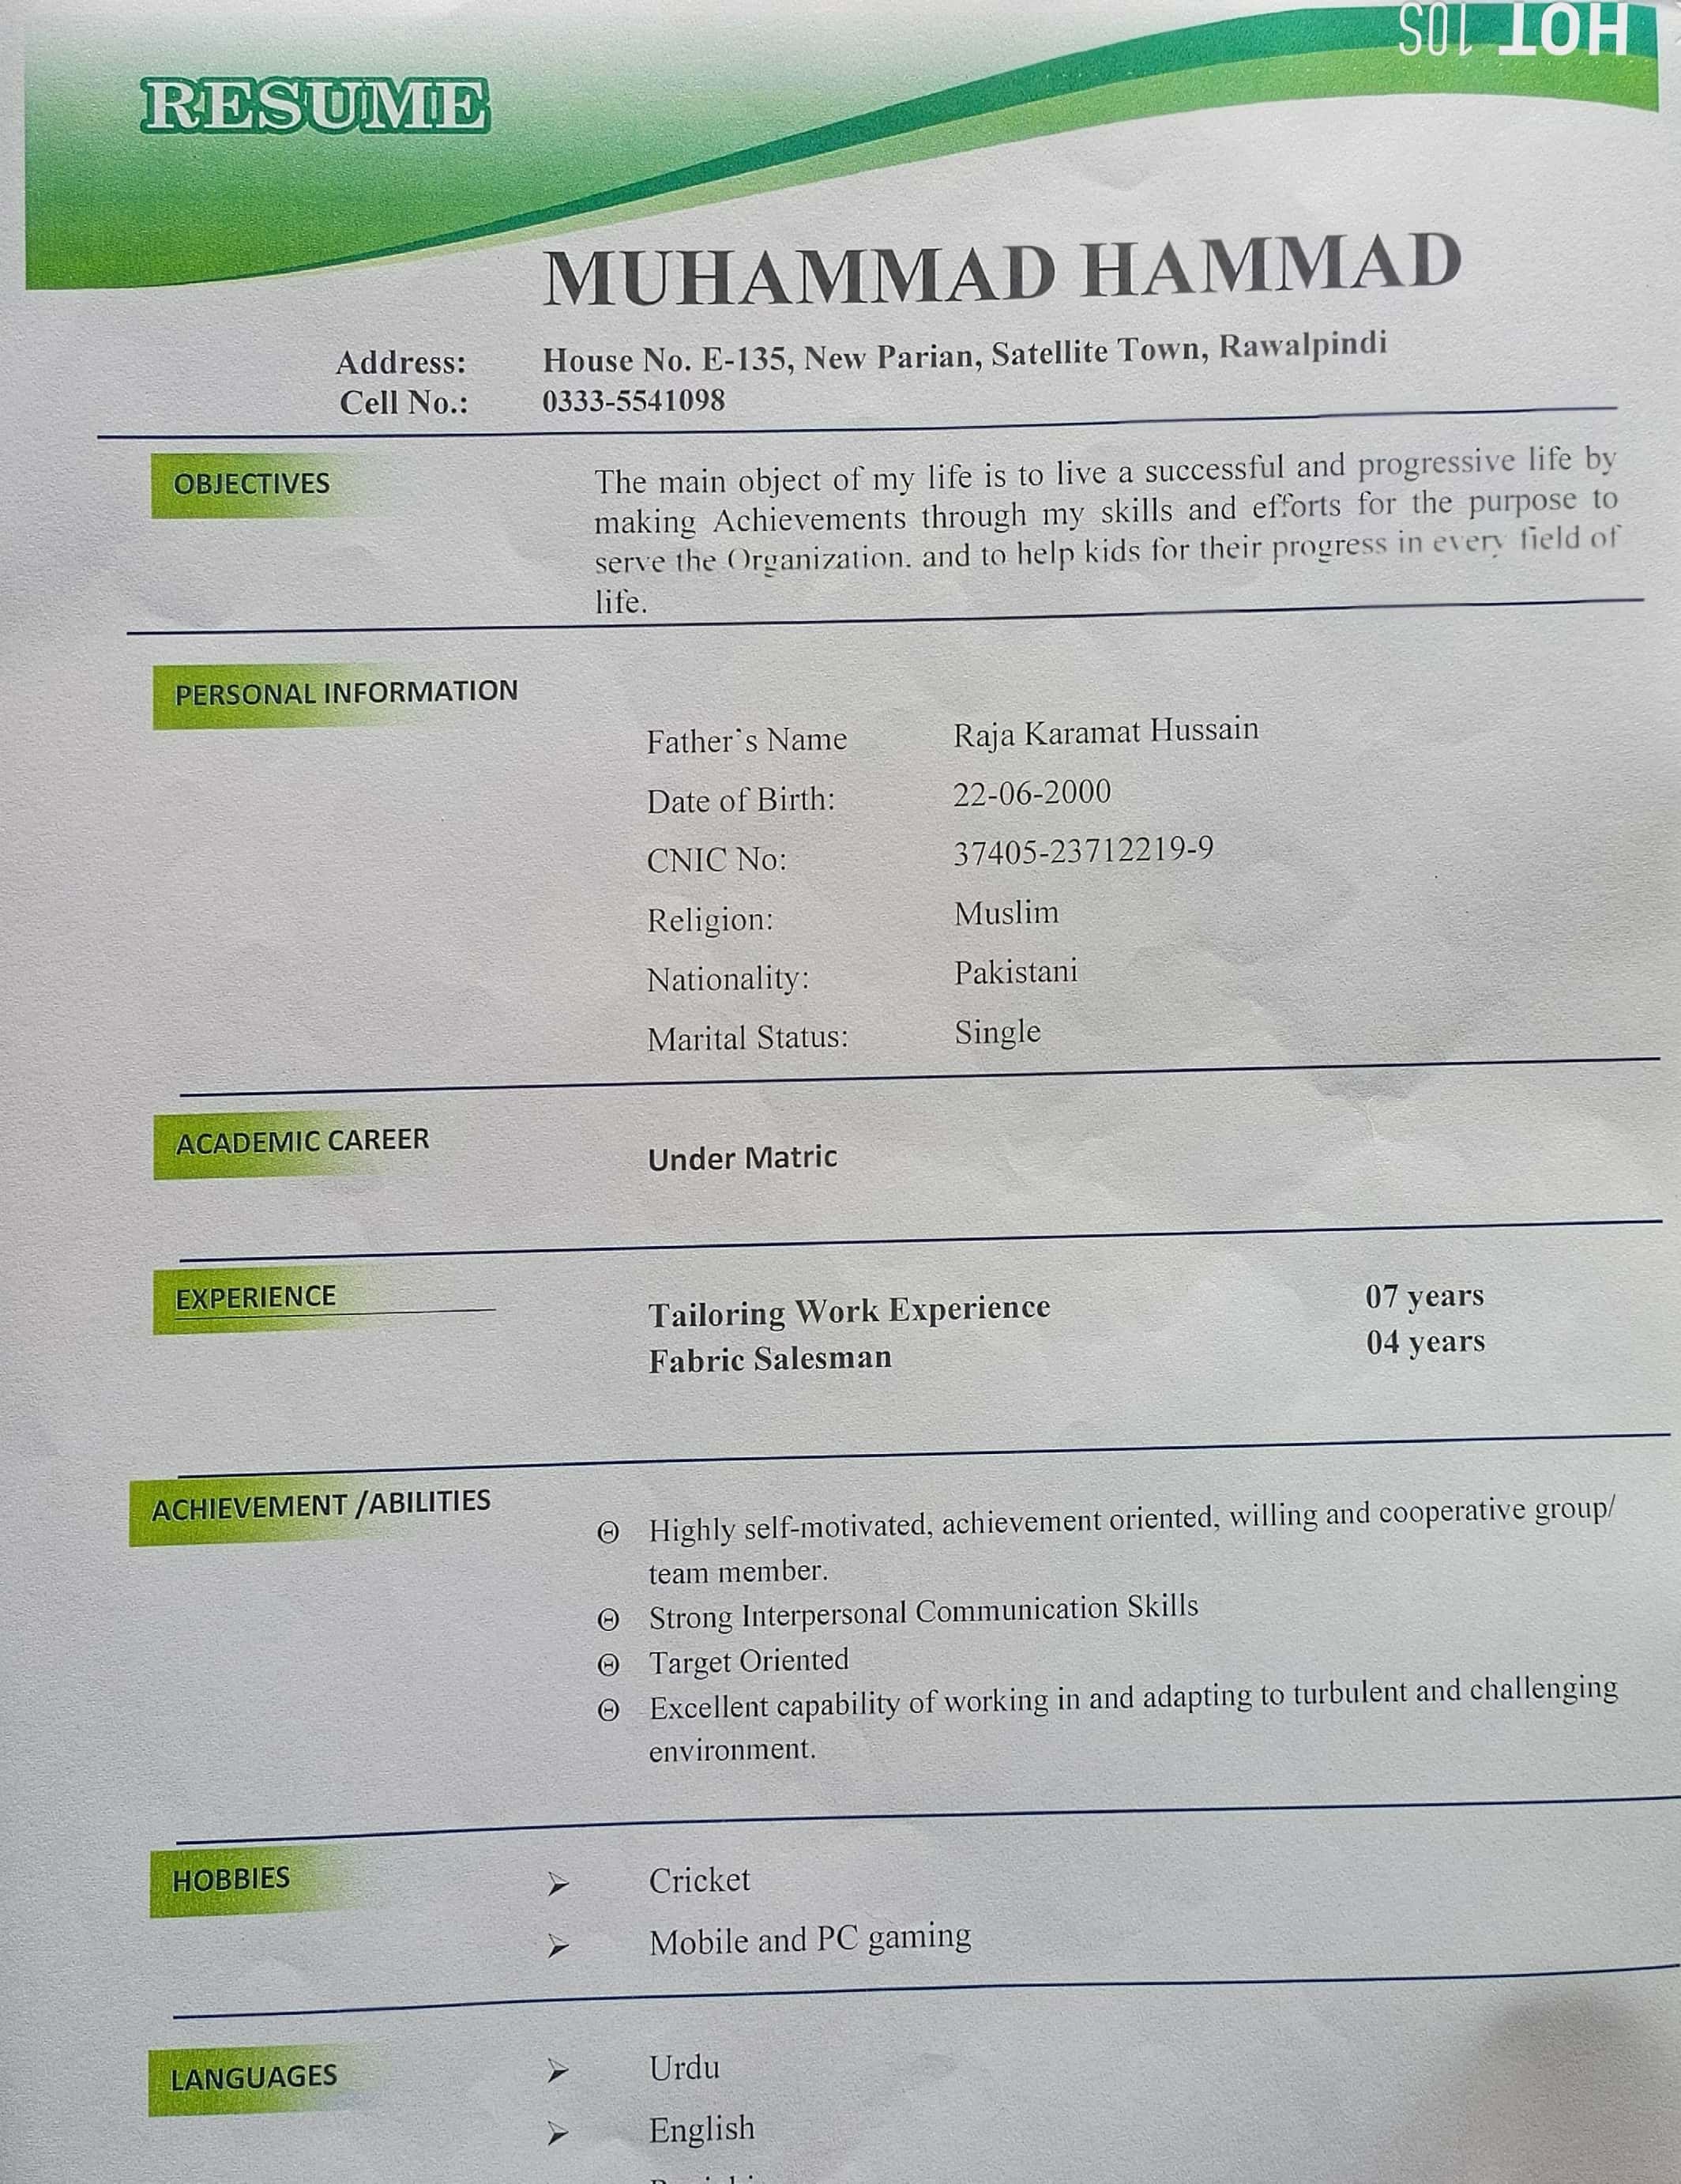 HOT 10S
RESUME
MUHAMMAD HAMMAD
Address: House No. E-135, New Parian, Satellite Town, Rawalpindi
Cell No.: 0333-5541098
OBJECTIVES
The main object of my life is to live a successful and progressive life by
making Achievements through my skills and efforts for the purpose to
serve the Organization. and to help kids for their progress in every field of
life.
PERSONAL INFORMATION
Father`s Name Raja Karamat Hussain
Date of Birth: 22-06-2000
CNIC No: 37405-23712219-9
Religion: Muslim
Nationality: Pakistani
Marital Status: Single
ACADEMIC CAREER
Under Matric
EXPERIENCE
Tailoring Work Experience 07 years
Fabric Salesman 04 years
ACHIEVEMENT /ABILITIES
Θ Highly self-motivated, achievement oriented, willing and cooperative group/
team member.
Θ Strong Interpersonal Communication Skills
Θ Target Oriented
Θ Excellent capability of working in and adapting to turbulent and challenging
environment.
HOBBIES
➢ Cricket
➢ Mobile and PC gaming
LANGUAGES
➢ Urdu
➢ English